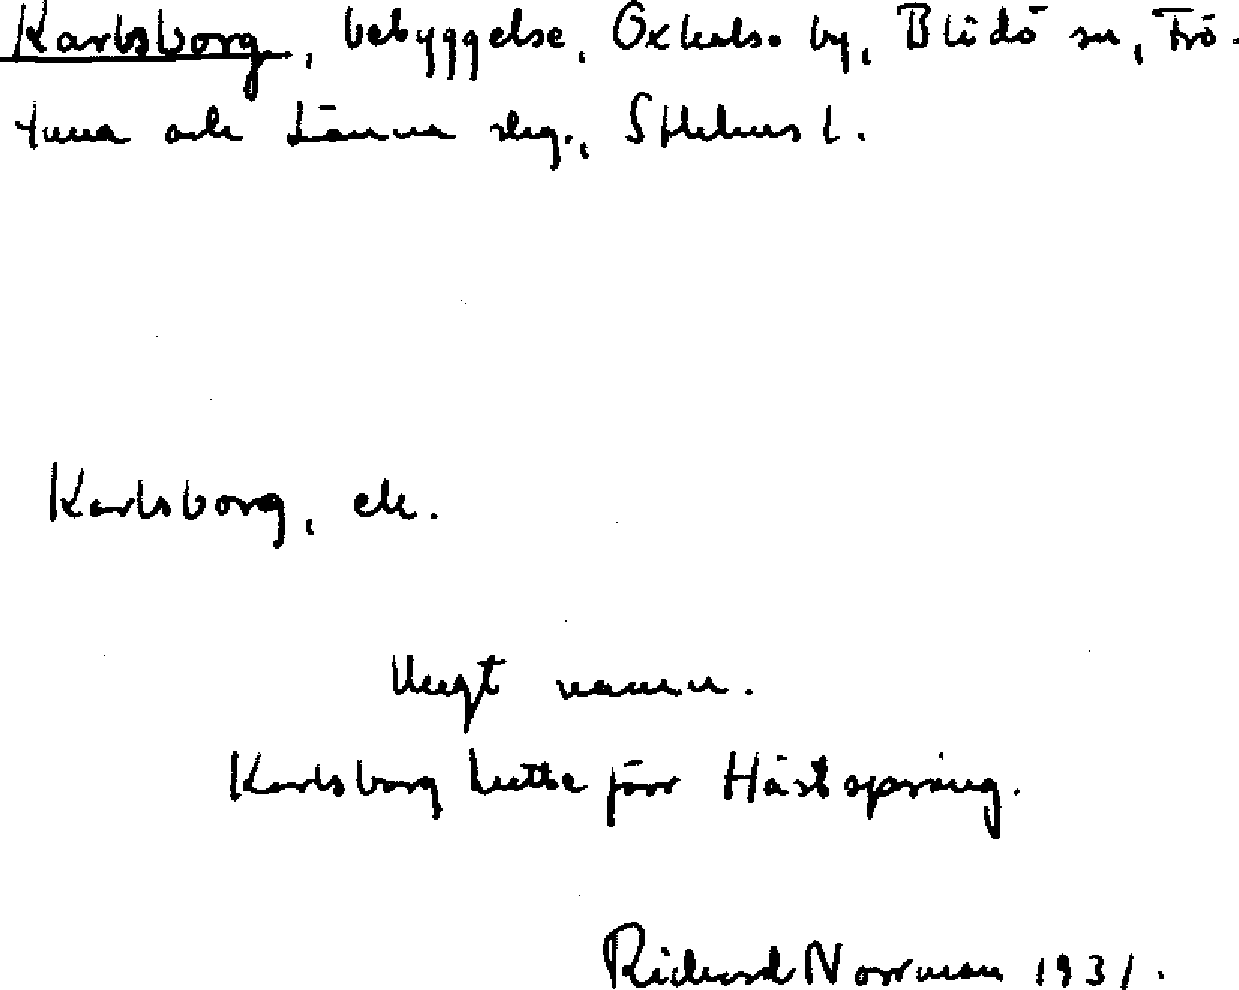 Karlsborg, bebyggelse, Oxhalsö by, Blidö sn, Frö-
tuna och Länna skg., Sthlms l.
Karlsborg, ek.
Ungt namn.
Karlsborg hette förr Hästspräng.
Richard Norrman 1931.